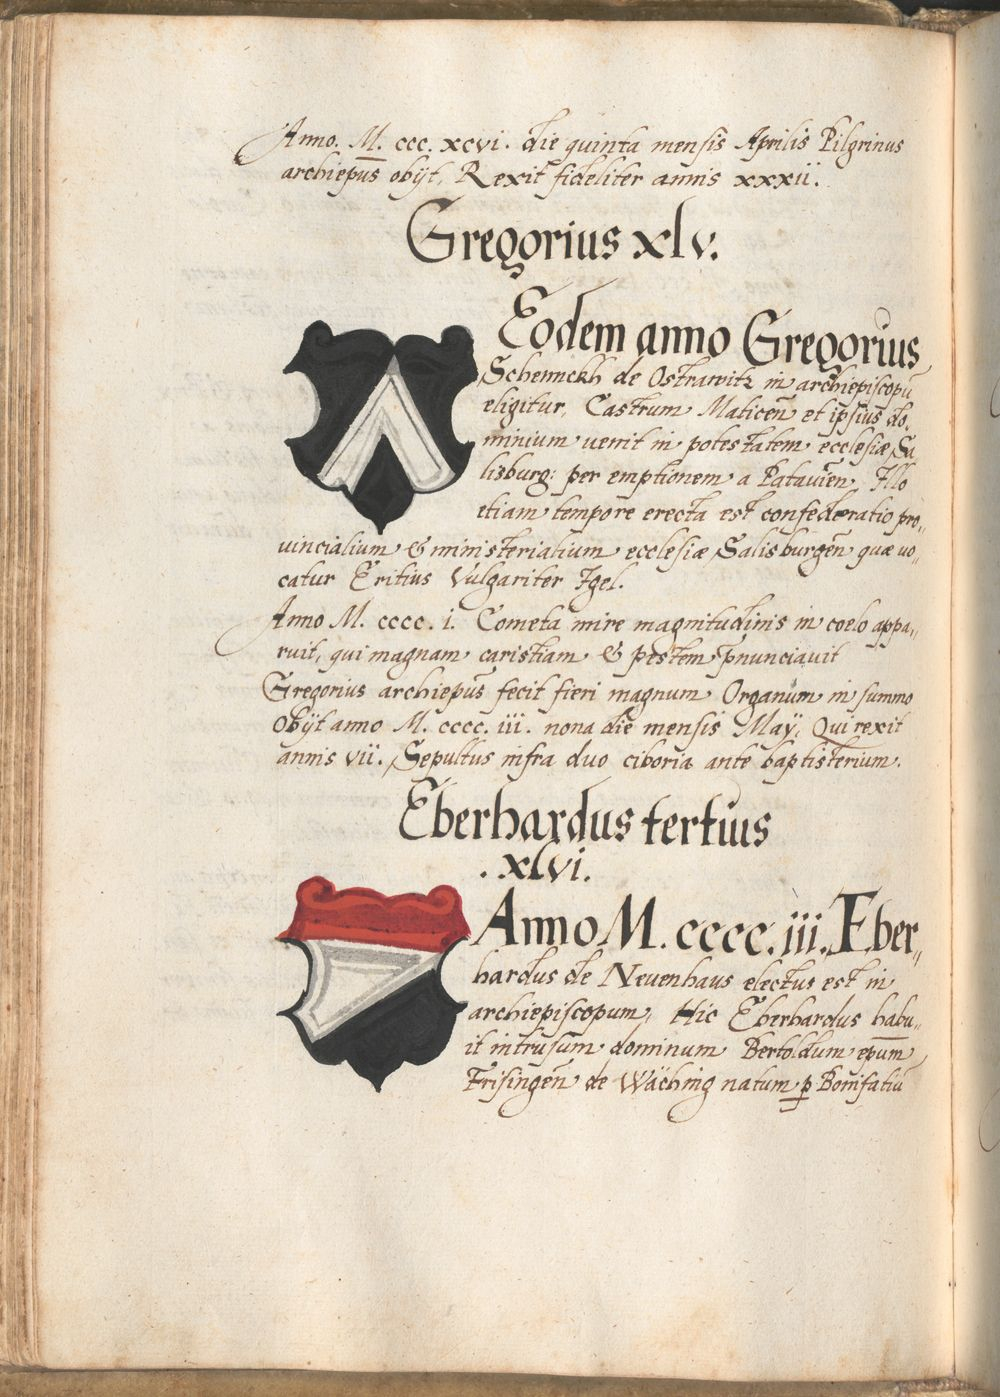 Anno. M. ccc. xcvi. die quinta mensis Aprilis Pilgrinus
archiepūs obijt, Rexit fideliter annis xxxii.
Gregorius xlv.
Eodem anno Gregorius
Schennckh de Ostrawitz in archiepiscopū
eligitur, Castrum Maticēn et ipsius do,
minium uenit in potestatem ecclesiæ Sa
lisburg: per emptionem a Patauiēn, Illo
etiam tempore erecta est confederatio pro,,
uincialium & ministerialium ecclesiæ Salisburgēn quæ uo,
catur Eritius Vulgariter Igel.
Anno M. cccc. i. Cometa mire magnitudinis in coelo appa,,
ruit, qui magnam caristiam & pestem p̄nunciauit
Gregorius archiepūs fecit fieri magnum Organum in summo
Obijt anno M. cccc. iii. nona die mensis Maÿ, Qui rexit
annis vii. Sepultus infra duo ciboria ante baptisterium.
Eberhardus tertius
. xlvi.
Anno M. cccc. iii. Eber,,
hardus de Neuenhaus electus est in
archiepiscopum, Hic Eberhardus habu,,
it intrusum dominum Bertoldum ep̄um
Frisingēn de Wäching natum ꝑ Bonifatiū